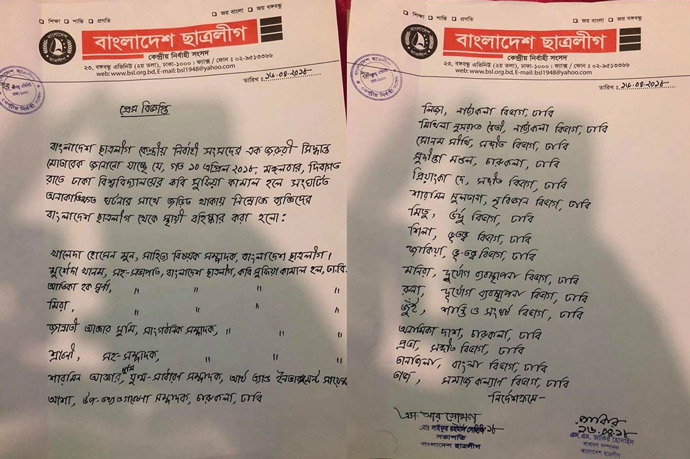 □ শিক্ষা □ শান্তি □ প্রগতি
□ জয় বাংলা □ জয় বঙ্গবন্ধু
বাংলাদেশ ছাত্রলীগ
কেন্দ্রীয় নির্বাহী সংসদ
২৩, বঙ্গবন্ধু এভিনিউ (২য় তলা), ঢাকা-১০০০ । ফ্যাক্স / ফোন : ০২-৯৫১৩৩৬৬
web: www.bsl.org.bd, E-mail: bsl1948@yahoo.com
তারিখ : ১৬-০৪-২০১৮
প্রেস বিজ্ঞপ্তি
বাংলাদেশ ছাত্রলীগ কেন্দ্রীয় নির্বাহী সংসদের এক জরুরী সিদ্ধান্ত
মোতাবেক জানানো যাচ্ছে যে, গত ১০ এপ্রিল ২০১৮, মঙ্গলবার, দিবাগত
রাতে ঢাকা বিশ্ববিদ্যালয়ের কবি সুফিয়া কামাল হলে সংঘটিত
অনাকাঙ্ক্ষিত ঘটনার সাথে জড়িত থাকায় নিম্নোক্ত ব্যক্তিদের
বাংলাদেশ ছাত্রলীগ থেকে স্থায়ী বহিষ্কার করা হলো:
খালেদা হোসেন মুন, সাহিত্য বিষয়ক সম্পাদক, বাংলাদেশ ছাত্রলীগ।
মুর্শেদা খানম, সহ-সভাপতি, বাংলাদেশ ছাত্রলীগ, কবি সুফিয়া কামাল হল, ঢাবি.
আতিকা হক স্বর্ণা, " " "
মিরা, " " "
জান্নাতী আক্তার সুমি, সাংগঠনিক সম্পাদক, " "
শ্রাবণী, সহ-সম্পাদক, " " "
শারমিন আক্তার, যুগ্ম-সাধারণ সম্পাদক,
আশা, উপ- সম্পাদক, চারুকলা, ঢাবি
□ শিক্ষা □ শান্তি □ প্রগতি
□ জয় বাংলা □ জয় বঙ্গবন্ধু
বাংলাদেশ ছাত্রলীগ
কেন্দ্রীয় নির্বাহী সংসদ
২৩, বঙ্গবন্ধু এভিনিউ (২য় তলা), ঢাকা-১০০০ । ফ্যাক্স / ফোন : ০২-৯৫১৩৩৬৬
web: www.bsl.org.bd, E-mail: bsl1948@yahoo.com
তারিখ : ১৬-০৪-২০১৮
লিজা, নাট্যকলা বিভাগ, ঢাবি
মিথিলা নুসরাত চৈতী, নাট্যকলা বিভাগ, ঢাবি
সোনম সীথি, সঙ্গীত বিভাগ, ঢাবি
সুদীপ্তা মন্ডল, চারুকলা, ঢাবি
প্রিয়াংকা দে, সঙ্গীত বিভাগ, ঢাবি
শারমিন সুলতানা, নৃবিজ্ঞান বিভাগ, ঢাবি
মিতু, উর্দু বিভাগ, ঢাবি
শিলা, ভূতত্ত্ব বিভাগ, ঢাবি
জাকিয়া, ভূ-তত্ত্ব বিভাগ, ঢাবি
মনিরা, দুর্যোগ ব্যবস্থাপনা বিভাগ, ঢাবি
রুনা, দুর্যোগ ব্যবস্থাপনা বিভাগ, ঢাবি
জুঁই, শান্তি ও সংঘর্ষ বিভাগ, ঢাবি
অনামিকা দাশ, চারুকলা, ঢাবি
প্রভা, সঙ্গীত বিভাগ, ঢাবি
তানজিলা, বাংলা বিভাগ, ঢাবি
তাজ, সমাজ কল্যাণ বিভাগ, ঢাবি
নির্দেশক্রমে-
মোঃ সাইফুর রহমান সোহাগ
সভাপতি
বাংলাদেশ ছাত্রলীগ
জাকির
১৬.০৪.১৮
এস.এম. জাকির হোসাইন
সাধারণ সম্পাদক
বাংলাদেশ ছাত্রলীগ